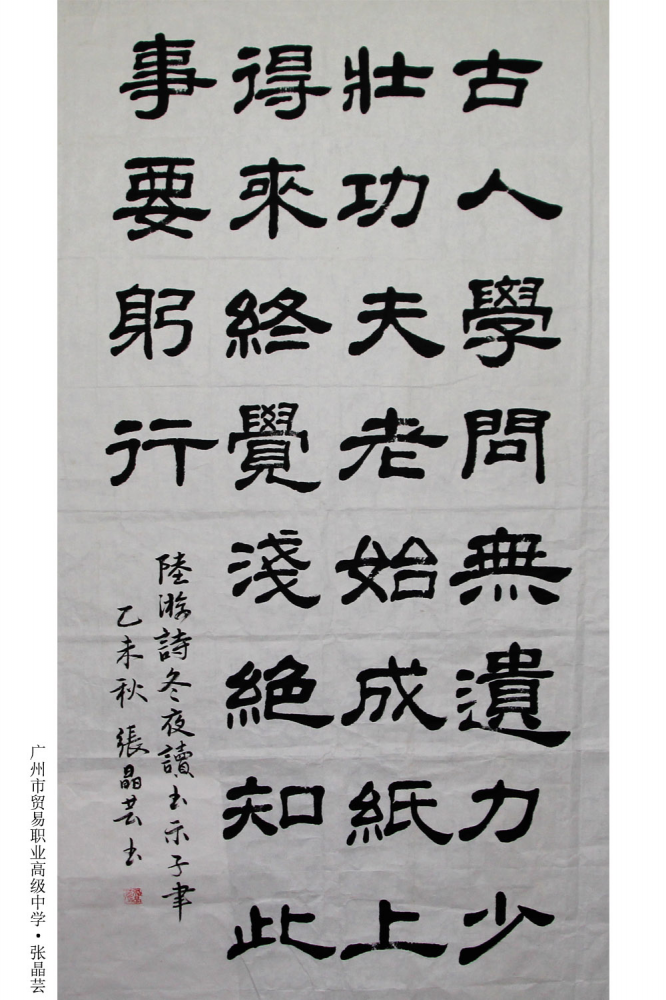 古人學問無遺力少
壯功夫老始成紙上
得來終覺淺絶知此
事要躬行
陸游詩冬夜讀书示子聿
乙未秋 張晶芸书
广州市贸易职业高级中学·张晶芸